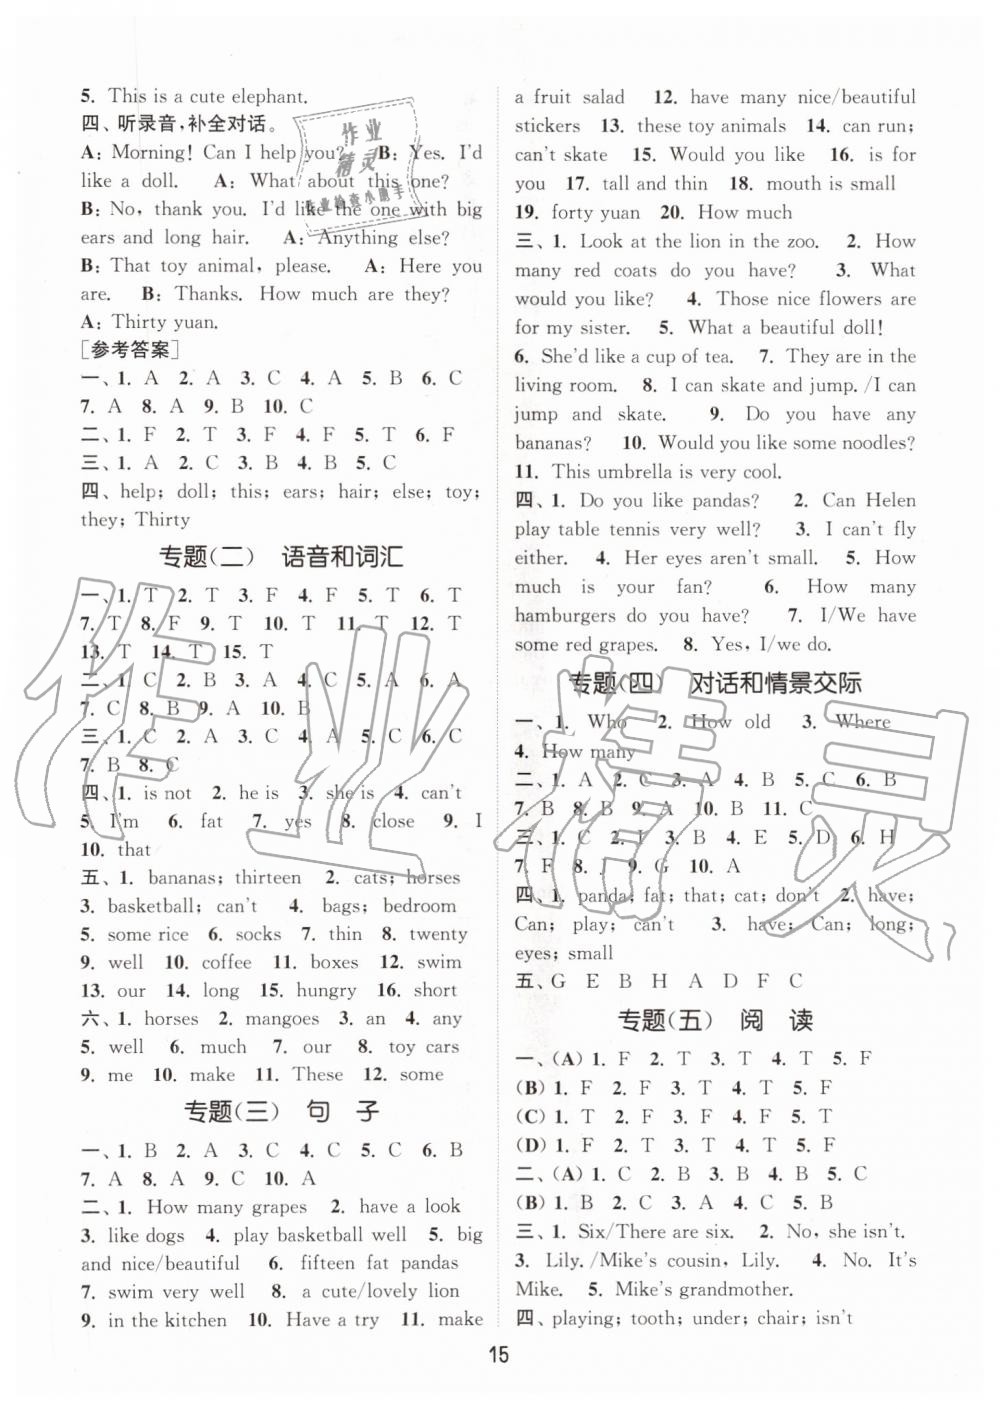 5. This is a cute elephant.
四、听录音,补全对话。
A: Morning! Can I help you? B: Yes. I'd
like a doll. A: What about this one?
B: No, thank you. I'd like the one with big
ears and long hair. A: Anything else?
B: That toy animal, please. A: Here you
are. B: Thanks. How much are they?
A: Thirty yuan.
[参考答案]
一、1. A 2. A 3. C 4. A 5. B 6. C
7. A 8. A 9. B 10. C
二、1. F 2. T 3. F 4. F 5. T 6. F
三、1. A 2. C 3. B 4. B 5. C
四、help; doll; this; ears; hair; else; toy;
they; Thirty
专题(二) 语音和词汇
一、1. T 2. T 3. F 4. F 5. T 6. T
7. T 8. F 9. T 10. T 11. T 12. T
13. T 14. T 15. T
二、1. C 2. B 3. A 4. C 5. A 6. A
7. C 8. B 9. A 10. B
三、1. C 2. A 3. C 4. A 5. C 6. C
7. B 8. C
四、1. is not 2. he is 3. she is 4. can't
5. I'm 6. fat 7. yes 8. close 9. I
10. that
五、1. bananas; thirteen 2. cats; horses
3. basketball; can't 4. bags; bedroom
5. some rice 6. socks 7. thin 8. twenty
9. well 10. coffee 11. boxes 12. swim
13. our 14. long 15. hungry 16. short
六、1. horses 2. mangoes 3. an 4. any
5. well 6. much 7. our 8. toy cars
9. me 10. make 11. These 12. some
专题(三) 句 子
一、1. B 2. A 3. C 4. C 5. C 6. B
7. A 8. A 9. C 10. A
二、1. How many grapes 2. have a look
3. like dogs 4. play basketball well 5. big
and nice/beautiful 6. fifteen fat pandas
7. swim very well 8. a cute/lovely lion
9. in the kitchen 10. Have a try 11. make
a fruit salad 12. have many nice/beautiful
stickers 13. these toy animals 14. can run;
can't skate 15. Would you like 16. is for
you 17. tall and thin 18. mouth is small
19. forty yuan 20. How much
三、1. Look at the lion in the zoo. 2. How
many red coats do you have? 3. What
would you like? 4. Those nice flowers are
for my sister. 5. What a beautiful doll!
6. She'd like a cup of tea. 7. They are in the
living room. 8. I can skate and jump. /I can
jump and skate. 9. Do you have any
bananas? 10. Would you like some noodles?
11. This umbrella is very cool.
四、1. Do you like pandas? 2. Can Helen
play table tennis very well? 3. I can't fly
either. 4. Her eyes aren't small. 5. How
much is your fan? 6. How many
hamburgers do you have? 7. I/We have
some red grapes. 8. Yes, I/we do.
专题(四) 对话和情景交际
一、1. Who 2. How old 3. Where
4. How many
二、1. A 2. C 3. A 4. B 5. C 6. B
7. B 8. B 9. A 10. B 11. C
三、1. C 2. I 3. B 4. E 5. D 6. H
7. F 8. J 9. G 10. A
四、1. panda; fat; that; cat; don't 2. have;
Can; play; can't 3. have; Can; long;
eyes; small
五、G E B H A D F C
专题(五) 阅 读
一、(A) 1. F 2. T 3. T 4. T 5. F
(B) 1. F 2. F 3. T 4. T 5. F
(C) 1. T 2. F 3. F 4. F 5. T
(D) 1. F 2. T 3. T 4. T 5. F
二、(A) 1. C 2. B 3. B 4. B 5. C
(B) 1. B 2. C 3. A 4. C 5. B
三、1. Six/There are six. 2. No, she isn't.
3. Lily. /Mike's cousin, Lily. 4. No. It's
Mike. 5. Mike's grandmother.
四、playing; tooth; under; chair; isn't
15
作业精灵
作业
精灵
作业检查小助手